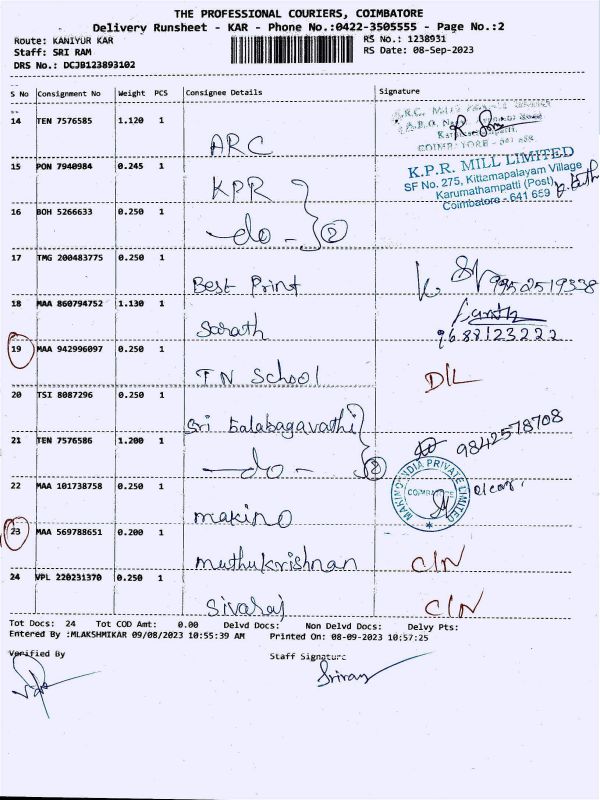 THE PROFESSIONAL COURIERS, COIMBATORE
Delivery Runsheet - KAR - Phone No.:0422-3505555 - Page No.:2
Route: KANIYUR KAR RS No.: 1238931
Staff: SRI RAM RS Date: 08-Sep-2023
DRS No.: DCJB123893102
S No Consignment No Weight PCS Consignee Details Signature
14 TEN 7576585 1.120 1 ARC
15 PON 7940984 0.245 1 KPR K.P.R. MILL LIMITED
SF No. 275, Kittampalayam Village
Karumathampatti (Post),
Coimbatore - 641 659
16 BOH 5266633 0.250 1 -do- 2
17 TMG 200483775 0.250 1 Best Print 9952519338
18 MAA 860794752 1.130 1 Sarath
9688123222
19 MAA 942996097 0.250 1 TN School D/L
20 TSI 8087296 0.250 1 Sri balabagavathi
9842578708
21 TEN 7576586 1.200 1 -do- 2
MAKINO INDIA PRIVATE LIMITED
COIMBATORE
22 MAA 101738758 0.250 1 makino
23 MAA 569788651 0.200 1 muthukrishnan C/N
24 VPL 220231370 0.250 1 Sivaraj C/N
Tot Docs: 24 Tot COD Amt: 0.00 Delvd Docs: Non Delvd Docs: Delvy Pts:
Entered By :MLAKSHMIKAR 09/08/2023 10:55:39 AM Printed On: 08-09-2023 10:57:25
Verified By Staff Signature
Sriram